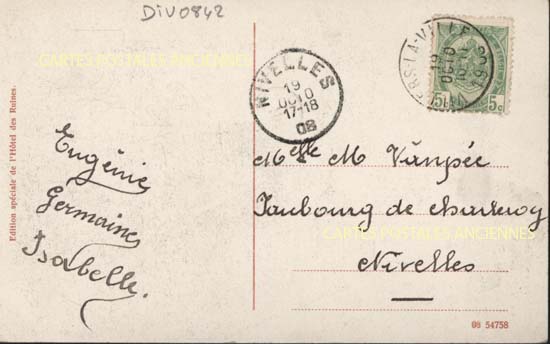 DIV0842
CARTES POSTALES ANCIENNES
Edition spéciale de l'Hôtel des Ruines.
Eugénie
Germaine
Isabelle.
NIVELLES
19
OCTO
17-18
08
ERS-LA-VILLE
19
OCTO
5c 5c
Melle M Vanpée
Faubourg de Charleroy
CARTES POSTALES ANCIENNES
Nivelles
08 54758